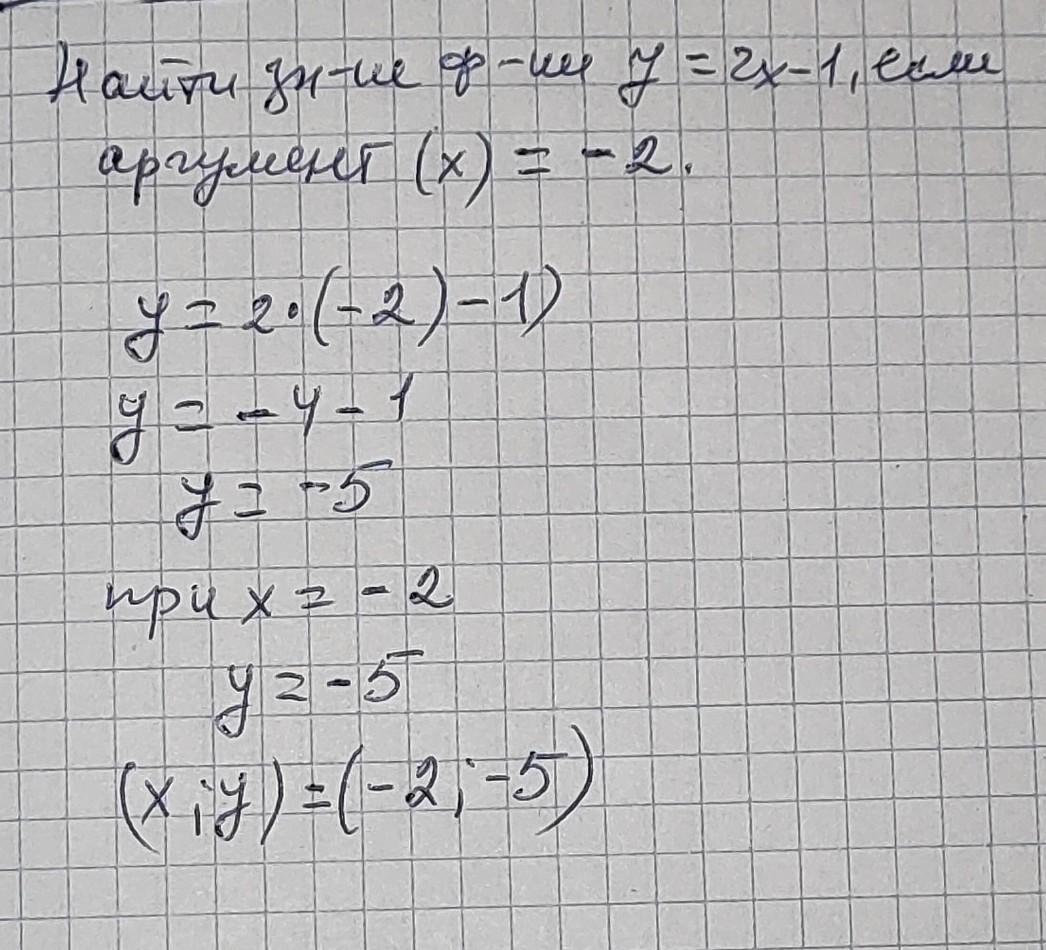 Найти зн-ие ф-ии y = 2x-1, если
аргумент (x) = -2.
y = 2·(-2)-1)
y = -4-1
y = -5
при x = -2
y = -5
(x;y) = (-2;-5)